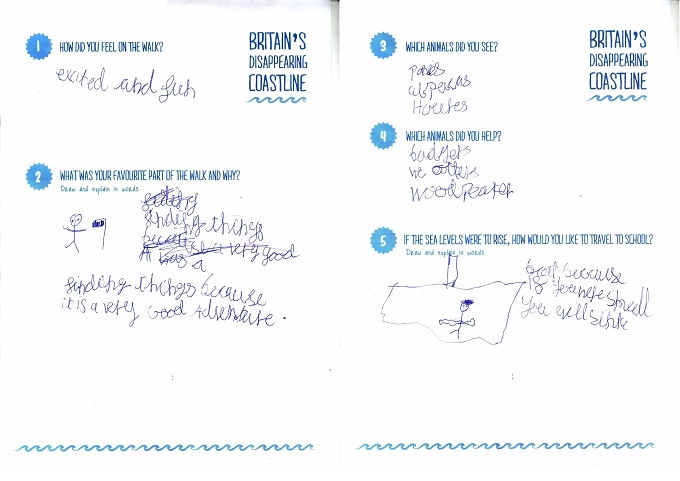 1 HOW DID YOU FEEL ON THE WALK?
BRITAIN'S
DISAPPEARING
COASTLINE
excited and fun
2 WHAT WAS YOUR FAVOURITE PART OF THE WALK AND WHY?
Draw and explain in words
finding things
a very good
finding things because
it is a very Good Adventure.
3 WHICH ANIMALS DID YOU SEE?
BRITAIN'S
DISAPPEARING
COASTLINE
4 WHICH ANIMALS DID YOU HELP?
badgers
otters
wood Peaker
5 IF THE SEA LEVELS WERE TO RISE, HOW WOULD YOU LIKE TO TRAVEL TO SCHOOL?
Draw and explain in words
boat because
if you
You will